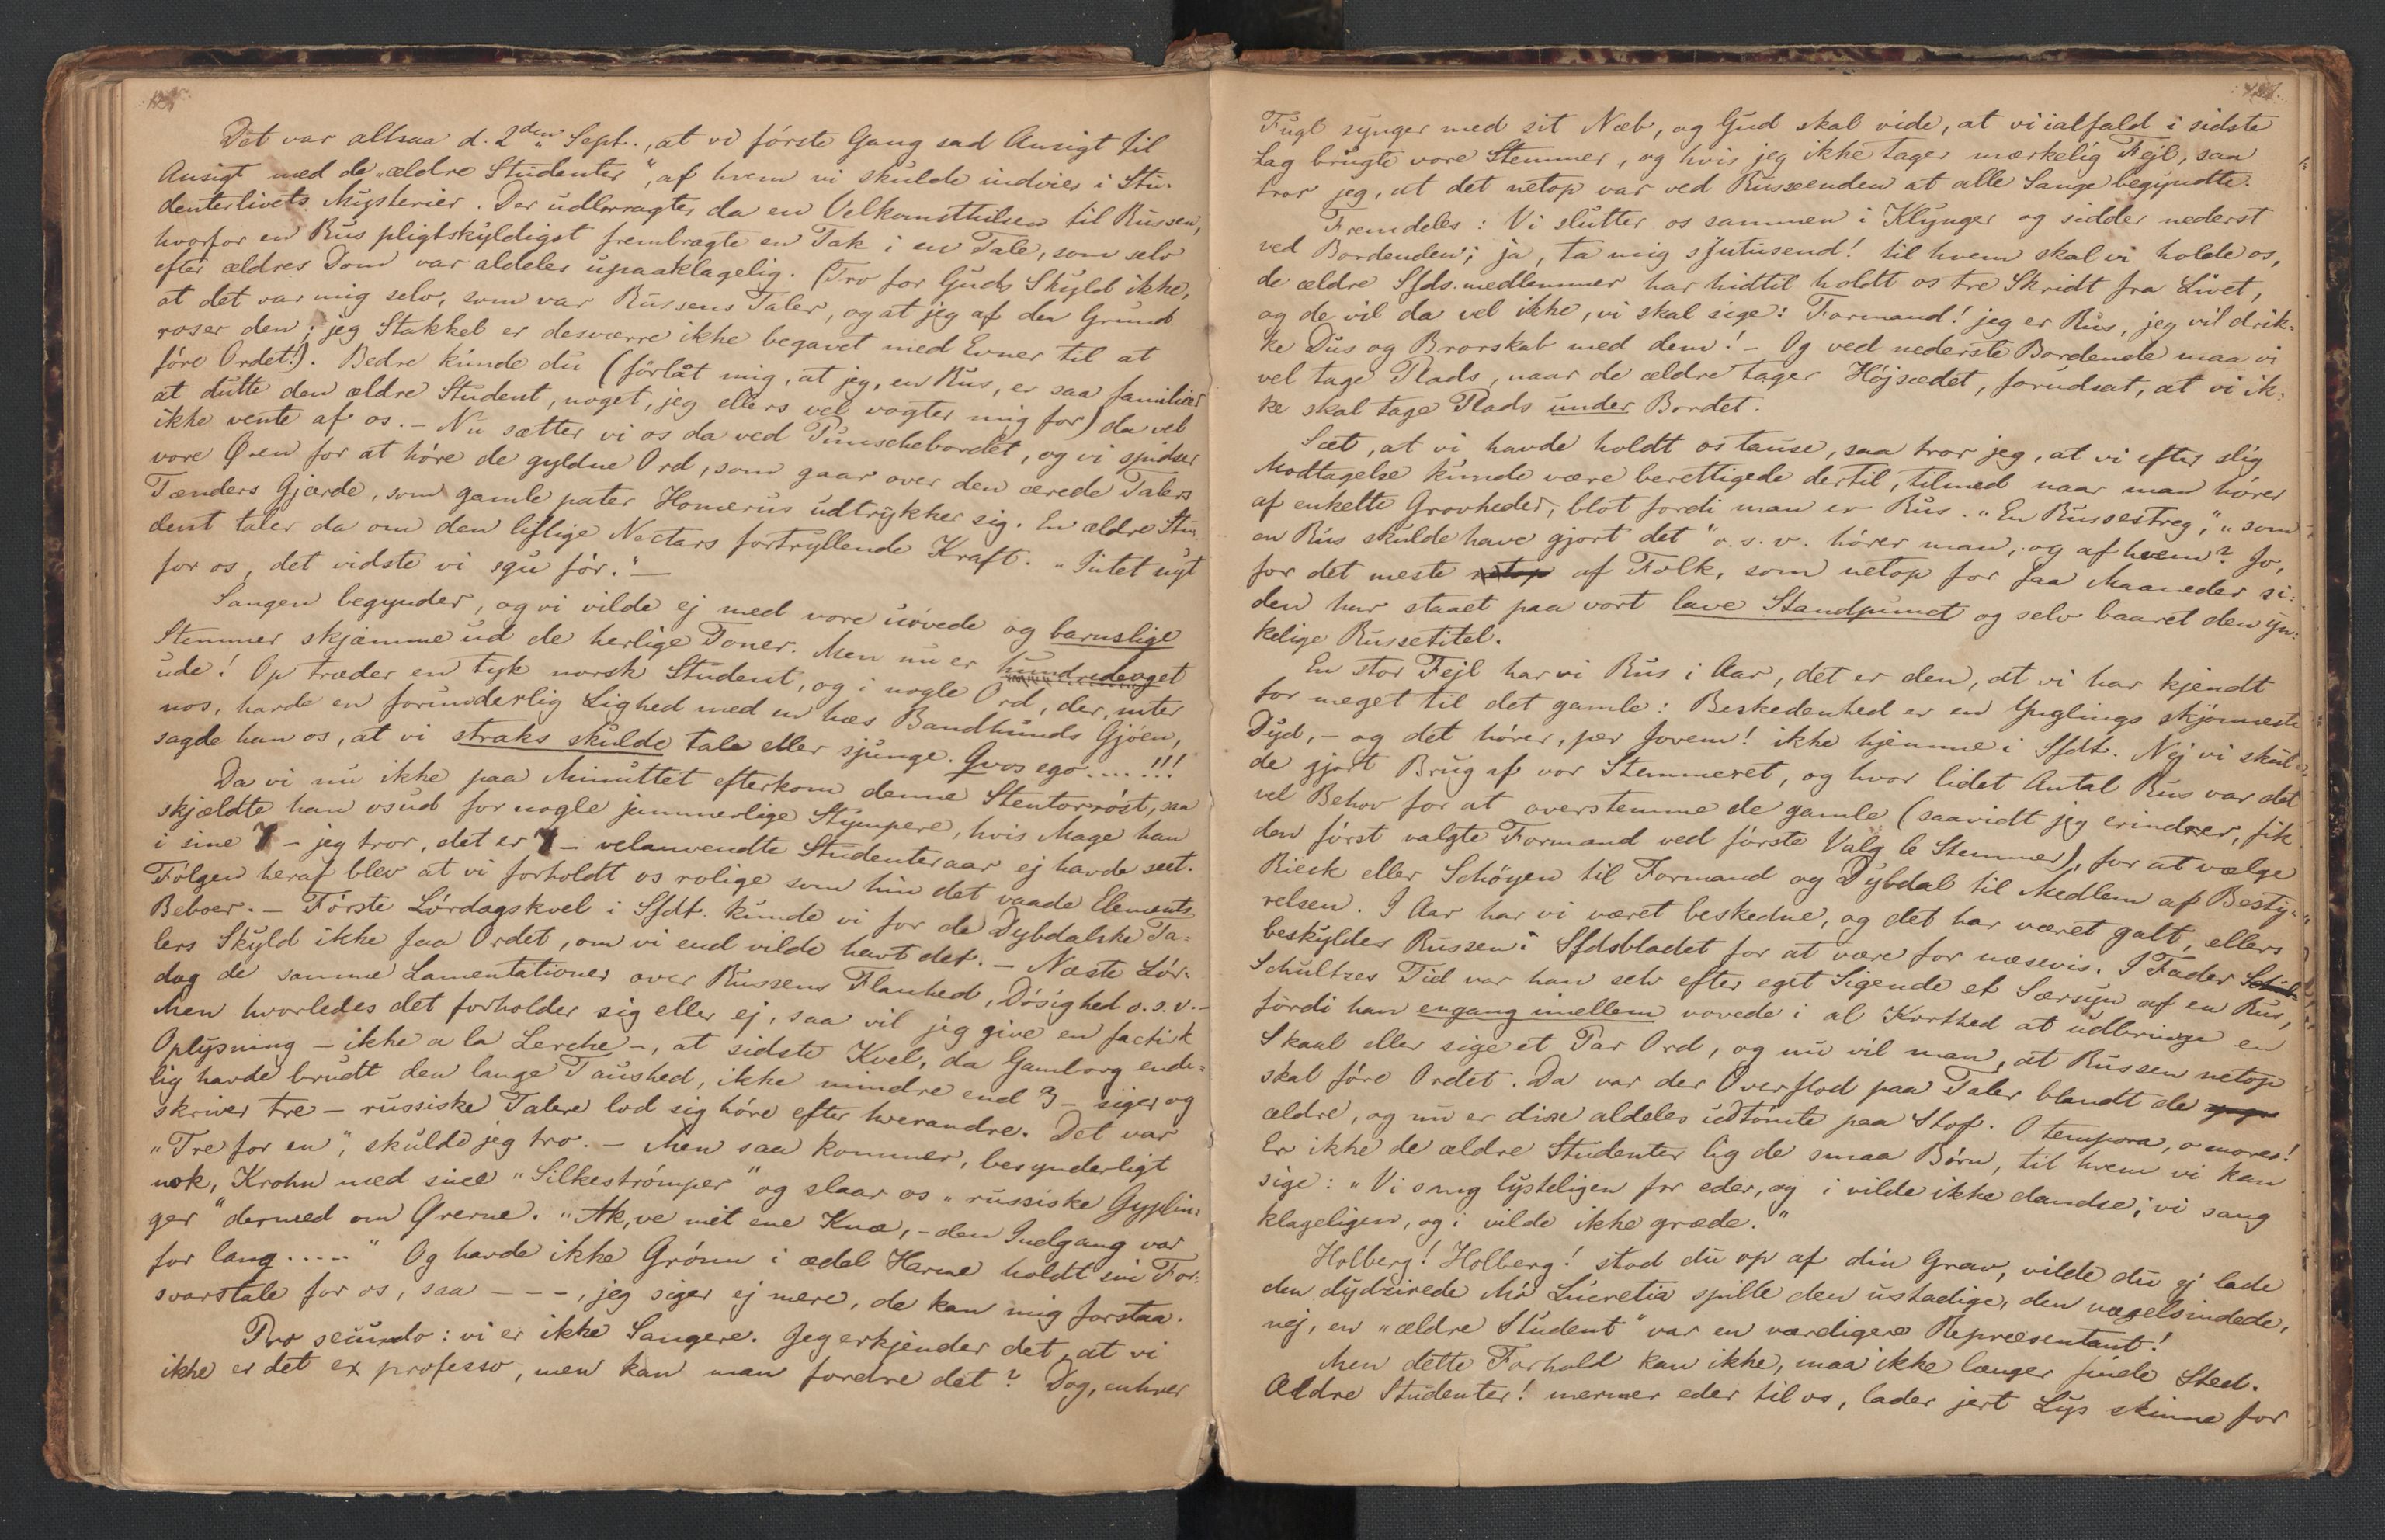 Det var altsaa d. 2den Sept., at vi første Gang sad Ansigt til
Ansigt med de „ældre Studenter“, af hvem vi skulde indvies i Stu-
denterlivets Mysterier. Der udbragtes da en Velkomsthilsen til Russen,
hvorfor en Rus pligtskyldigst frembragte en Tak i en Tale, som selv
efter ældres Dom var aldeles upaaklagelig. (Tro for Guds Skyld ikke,
at det var mig selv, som var Russens Taler, og at jeg af den Grund
roser den; jeg Stakkel er desværre ikke begavet med Evner til at
føre Ordet!). Bedre kunde du (førlåt mig, at jeg, en Rus, er saa familiær
at dutte den ældre Student, noget, jeg ellers vel vogter mig for) da vel
ikke vente af os. – Nu sætter vi os da ved Punschebordet, og vi spidser
vore Øren for at høre de gyldne Ord, som gaar over den ærede Talers
Tænders Gjærde, som gamle pater Homerus udtrykker sig. En ældre Stu-
dent taler da om den liflige Nectars fortryllende Kraft. „Intet nyt
for os, det vidste vi sgu før.“ –
Sangen begynder, og vi vilde ej med vore uøvede og barnslige
Stemmer skjæmme ud de herlige Toner. Men nu er hundredeaget
ude! Op træder en tyk norsk Student, og i nogle Ord, der, inter
nos, havde en forunderlig Lighed med en hæs Bandhunds Gjøen,
sagde han os, at vi straks skulde tale eller sjunge. Qvos ego....!!!
Da vi nu ikke paa Minuttet efterkom denne Stentorrøst, saa
skjældte han os ud for nogle jammerlige Stympere, hvis Mage han
i sine 7 – jeg tror, det er 7 – velanvendte Studenteraar ej havde seet.
Følgen heraf blev at vi forholdt os rolige som hin det vaade Elements
Beboer. – Første Lørdagskvel i Sfdt. kunde vi for de Dybdalske Ta-
lers Skyld ikke faa Ordet, om vi end vilde havt det. – Næste Lør-
dag de samme Lamentationer over Russens Flauhed, Døsighed o.s.v. –
Men hvorledes det forholder sig eller ej, saa vil jeg give en factisk
Oplysning – ikke a la Lerche –, at sidste Kvel, da Gamborg ende-
lig havde brudt den lange Taushed, ikke mindre end 3 – siger og
skriver tre – russiske Talere lod sig høre efter hverandre. Det var
„Tre for en“, skulde jeg tro. – Men saa kommer, besynderligt
nok, Krohn med sine „Silkestrømper“ og slaar os „russiske Gyplin-
ger“ dermed om Ørerne. „Ak, ve mit ene Knæ, – den Indgang var
for lang.....“ Og havde ikke Grønn i ædel Harme holdt sin For-
svarstale for os, saa – – –, jeg siger ej mere, de kan mig forstaa.
Pro secundo: vi er ikke Sangere. Jeg erkjender det, at vi
ikke er det ex professo, men kan man fordre det? Dog, enhver
Fugl synger med sit Næb, og Gud skal vide, at vi ialfald i sidste
Lag brugte vore Stemmer, og hvis jeg ikke tager mærkelig Fejl, saa
tror jeg, at det netop var ved Russeenden at alle Sange begyndte.
Fremdeles: Vi slutter os sammen i Klynger og sidder nederst
ved Bordenden; ja, ta mig sjutusend! til hvem skal vi holde os,
de ældre Sfds.medlemmer har hidtil holdt os tre Skridt fra Livet,
og de vil da vel ikke, vi skal sige: Formand! jeg er Rus, jeg vil drik-
ke Dus og Brorskab med dem! – Og ved nederste Bordende maa vi
vel tage Plads, naar de ældre tager Højsædet, forudsat, at vi ik-
ke skal tage Plads under Bordet.
Sæt, at vi havde holdt os tause, saa tror jeg, at vi efter slig
Modtagelse kunde være berettigede dertil, tilmed naar man hører
af enkelte Grovheder, blot fordi man er Rus. „En Russestreg“, „som
en Rus skulde have gjort det“ o.s.v. hører man, og af hvem? Jo,
for det meste netop af Folk, som netop for faa Maaneder si-
den har staaet paa vort lave Standpunct og selv baaret den yn-
kelige Russetitel.
En stor Fejl har vi Rus i Aar, det er den, at vi har kjendt
for meget til det gamle: Beskedenhed er en Ynglings skjønneste
Dyd, – og det hører, per Jovem! ikke hjemme i Sfdt. Nej vi skul-
de gjort Brug af vor Stemmeret, og hvor lidet Antal Rus var det
vel Behov for at overstemme de gamle (saavidt jeg erindrer, fik
den først valgte Formand ved første Valg 6 Stemmer), for at vælge
Rieck eller Schøyen til Formand og Dybdal til Medlem af Besty-
relsen. I Aar har vi været beskedne, og det har været galt, ellers
beskyldes Russen i Sfdsbladet for at være for næsevis. I Fader Schul
Schultzes Tid var han selv efter eget Sigende et Særsyn af en Rus,
fordi han engang imellem vovede i al Korthed at udbringe en
Skaal eller sige et Par Ord, og nu vil man, at Russen netop
skal føre Ordet. Da var der Overflod paa Taler blandt de yngre
ældre, og nu er disse aldeles udtømte paa Stof. O tempora, o mores!
Er ikke de ældre Studenter lig de smaa Børn, til hvem vi kan
sige: „Vi sang lysteligen for eder, og i vilde ikke dandse; vi sang
klageligen, og i vilde ikke græde.“
Holberg! Holberg! stod du op af din Grav, vilde du ej lade
den dydzirede Mø Lucretia spille den ustadige, den vægelsindede,
nej, en „ældre Student“ var en værdigere Repræsentant!
Men dette Forhold kan ikke, maa ikke længer finde Sted.
Ældre Studenter! nermer eder til os, lader jert Lys skinne for